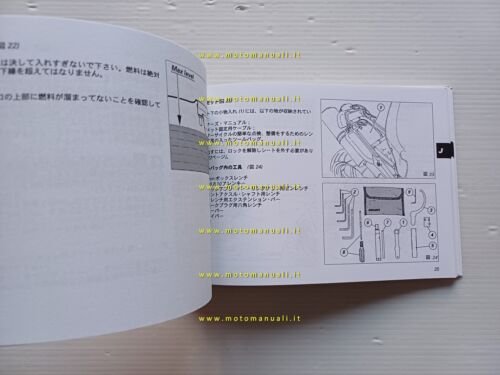 図 22)
は決して入れすぎないで下さい。燃料は絶対
下縁を超えてはなりません。
口の上部に燃料が溜まってないことを確認して
Max level
www.motomanuali.it
下の小物入れ (1) には、以下の物が収納されてい
ーズ・マニュアル；
ット固定用ケーブル；
ーサイクルの簡単な点検、整備をするためのレン
ったツールバッグ。
すには、ロックを解除しシートを外す必要があり
バッグ内の工具 (図 24)
ーボックスレンチ
ントアクスル・シャフト用レンチ
レンチ用エクステンション・バー
ークプラグ用六角レンチ
ーバー
イバー
J
図 23
図 24
25
www.motomanuali.it
www.motomanuali.it
www.motomanuali.it
www.motomanuali.it